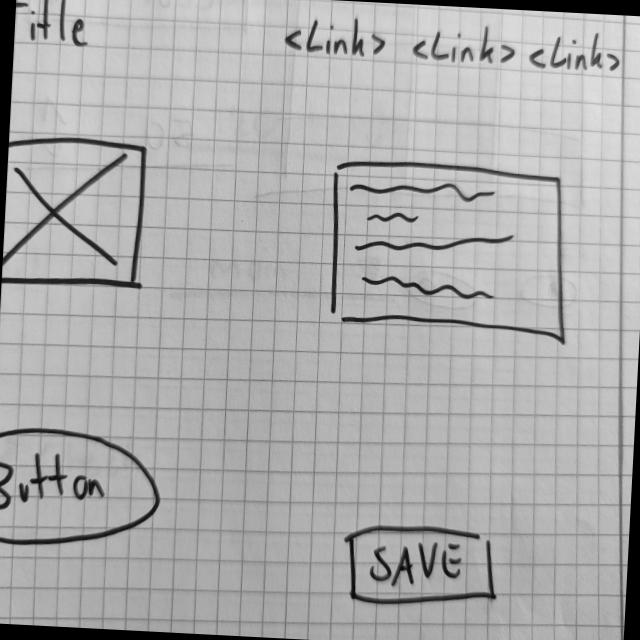 Title <Link> <Link> <Link>
Button
SAVE